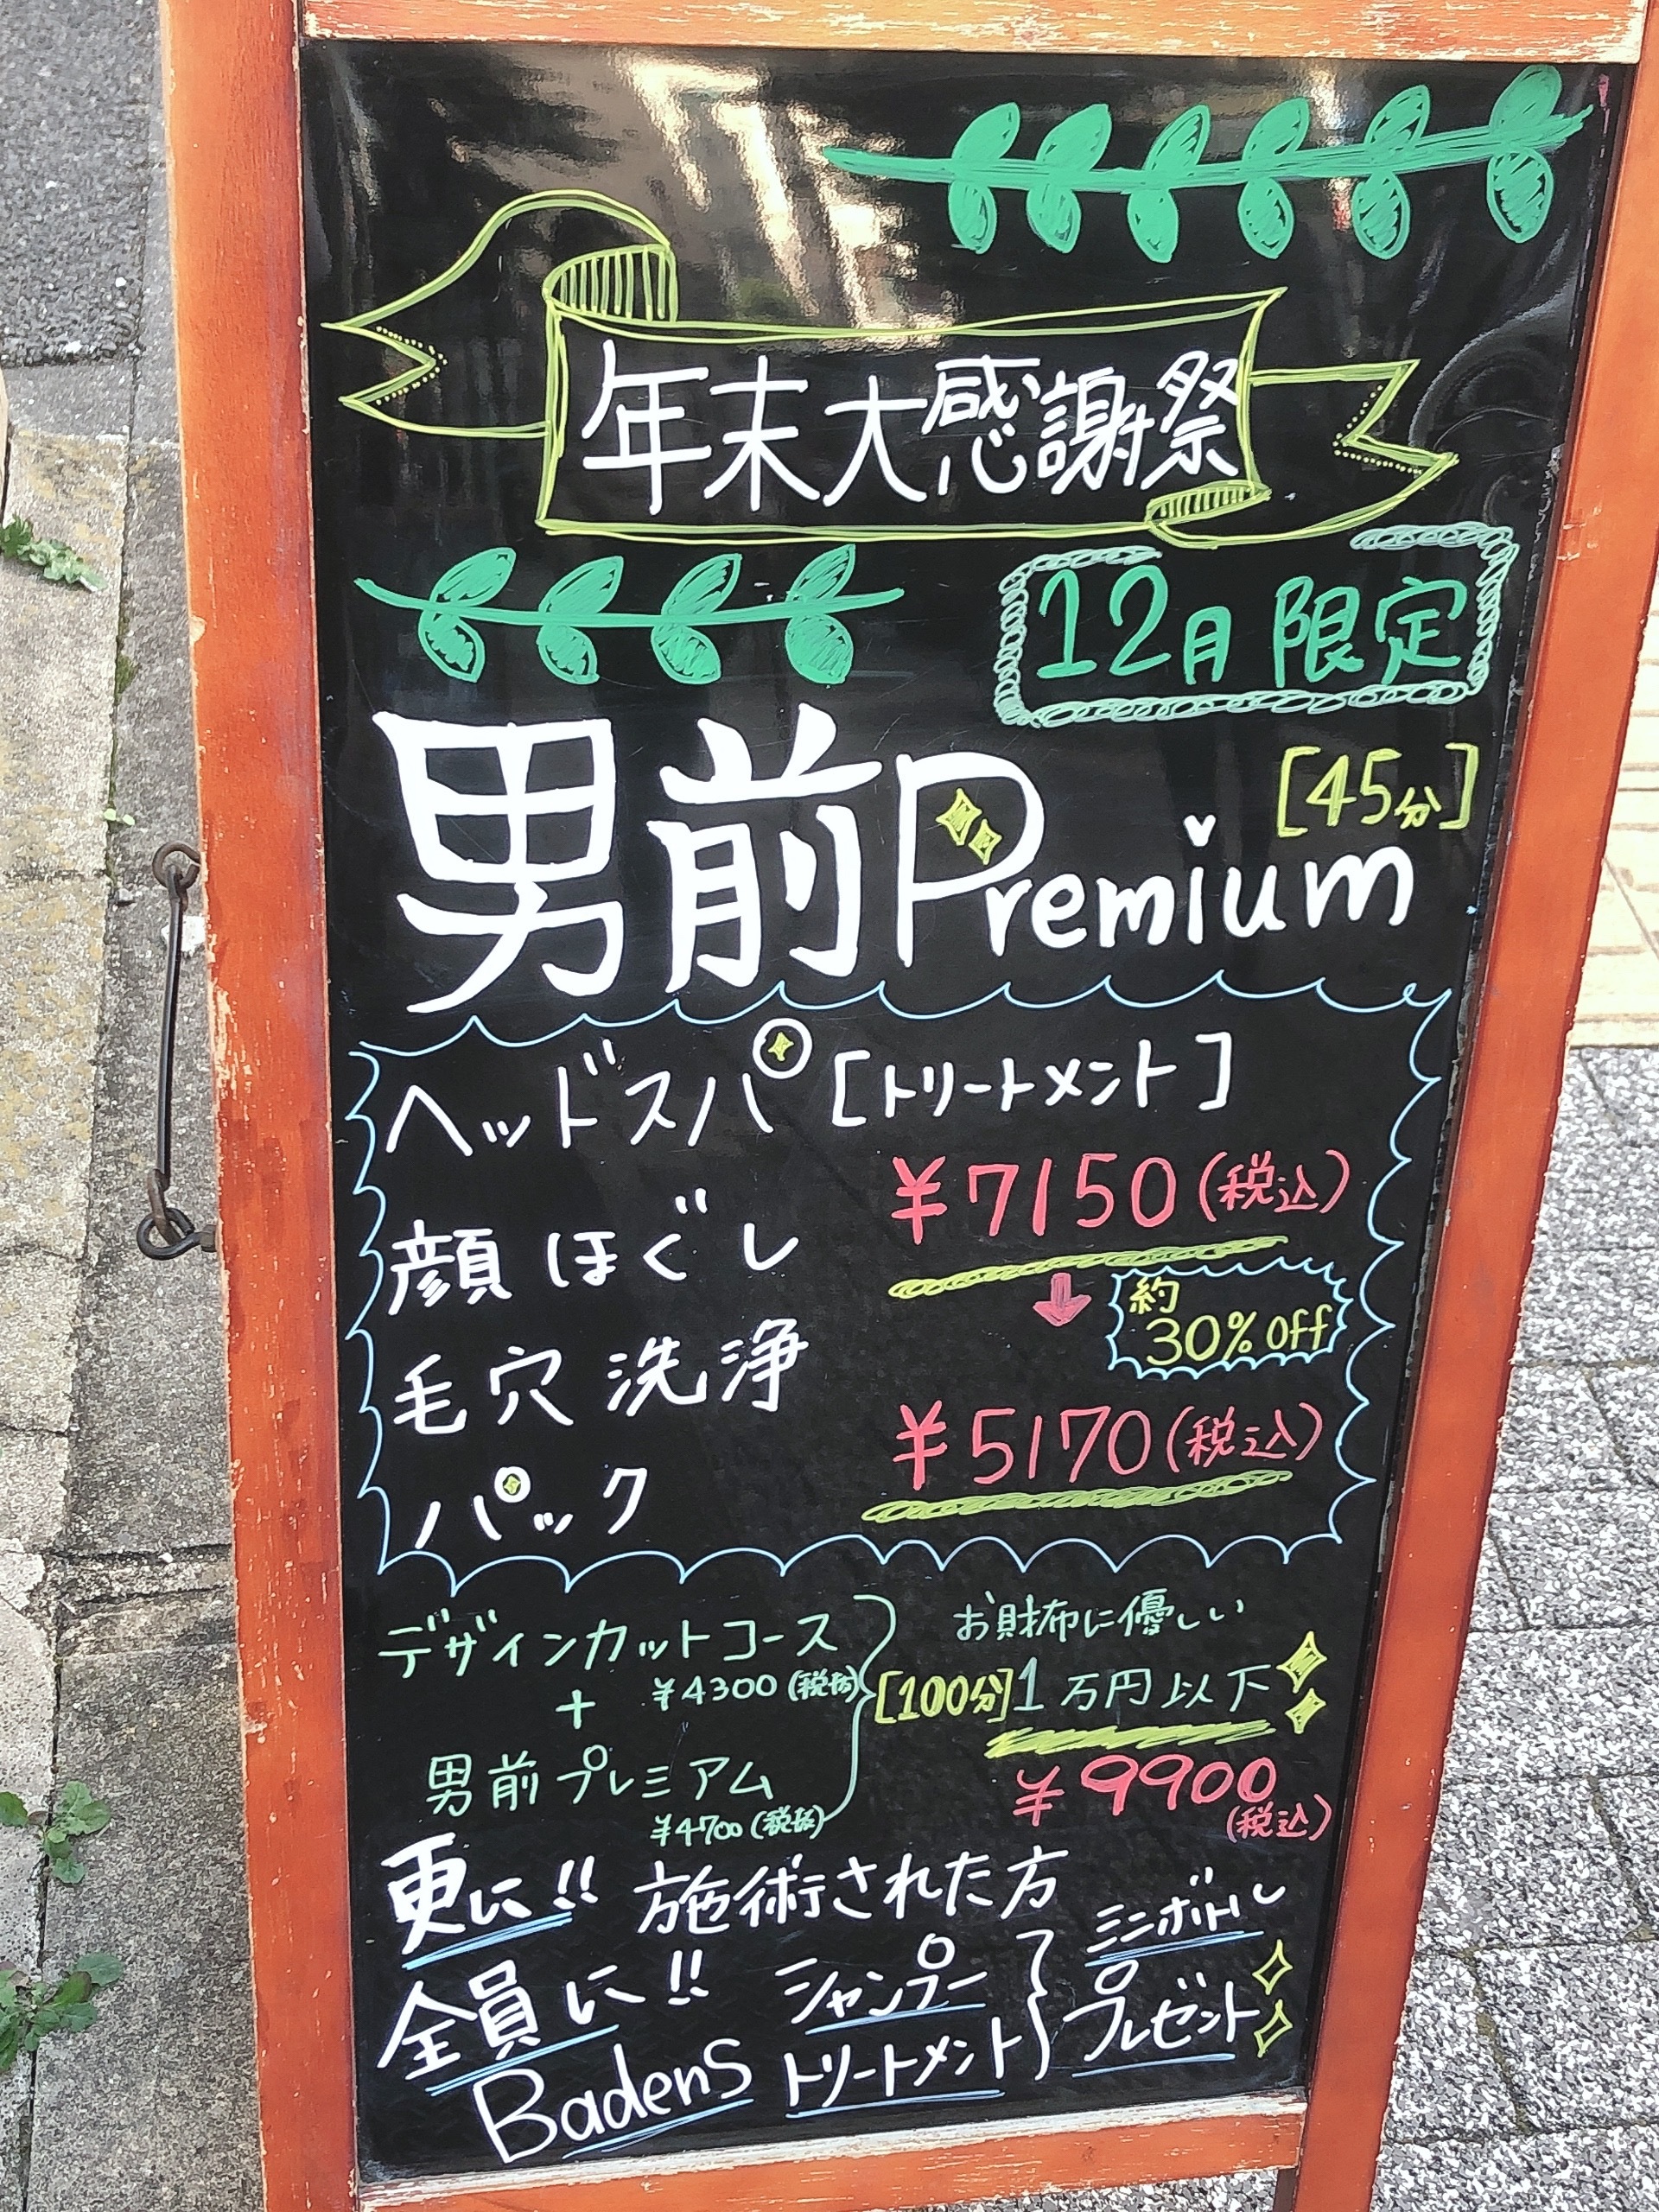 年末大感謝祭
12月限定
男前Premium [45分]
ヘッドスパ [トリートメント]
¥7150(税込)
顔ほぐし
約
30%off
毛穴洗浄
¥5170(税込)
パック
デザインカットコース
¥4300(税抜)
+
男前プレミアム
¥4700(税抜)
お財布に優しい
[100分]1万円以下
¥9900
(税込)
更に!! 施術された方
全員に!! シャンプー
Badens トリートメント
ミニボトル
プレゼント